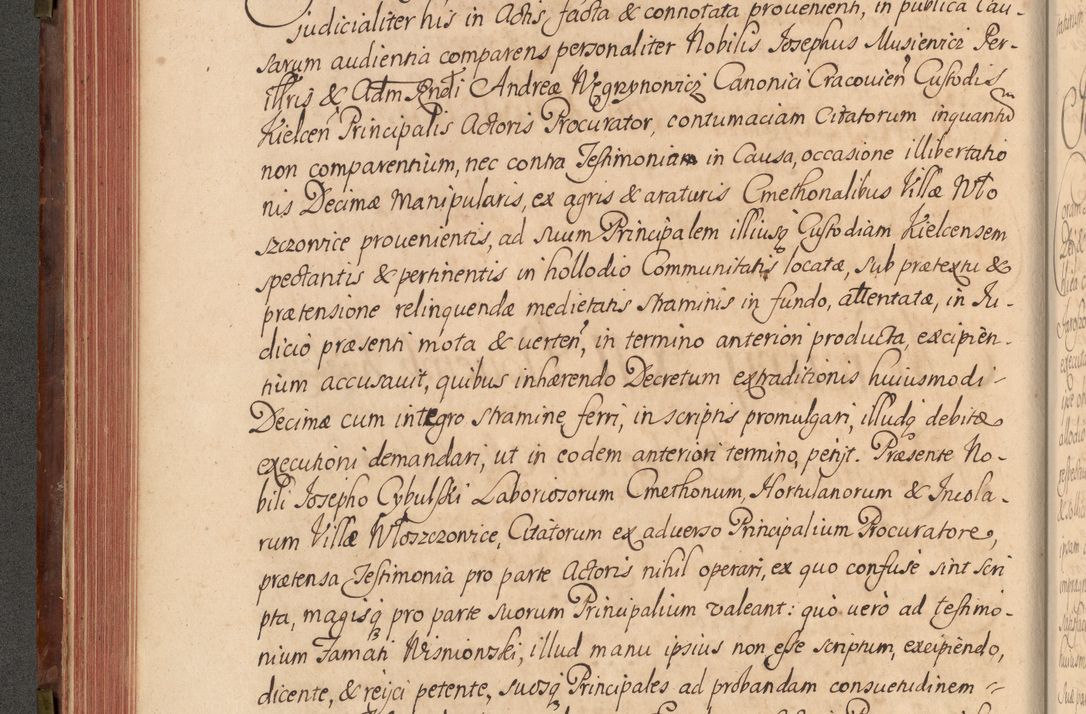 judicialiter his in Actis facta & connotata provenienti, in publica Cau-
sarum audientia comparens personaliter Nobilis Josephus Musienicz Per-
illris & Adm Rndi Andreæ Węgrzynowicz Canonici Cracovien Custodis
Kielcen Principalis Actoris Procurator, contumaciam Citatorum inquantum
non comparentium, nec contra Testimonia in Causa, occasione illibertatio
nis Decimæ Manipularis, ex agris & araturis Cmethonalibus Villæ Wło
szczowice provenientis, ad suum Principalem illiusq Custodiam Kielcensem
spectantis & pertinentis in hollodio Communitatis locatæ, sub prætextu &
prætensione relinquendæ medietatis straminis in fundo, attentatæ, in Ju-
dicio præsenti mota & verten, in termino anteriori producta, excipien-
tium accusavit, quibus inhærendo Decretum extraditionis huiusmodi
Decimæ cum integro stramine ferri, in scriptis promulgari, illudq debitæ
executioni demandari, ut in eodem anteriori termino, petijt. Præsente No-
bili Josepho Cybulski Laboriosorum Cmethonum, Hortulanorum & Incola-
rum Villæ Włoszczowice, Citatorum ex adverso Principalium Procuratore,
prætensa Testimonia pro parte Actoris nihil operari, ex quo confuse sint scri
pta, magisq pro parte suorum Principalium valeant: quò verò ad testimo-
nium Famati Wisniowski, illud manu ipsius non esse scriptum, excipiendo,
dicente, & reijci petente, suosq Principales ad probandam consuetudinem